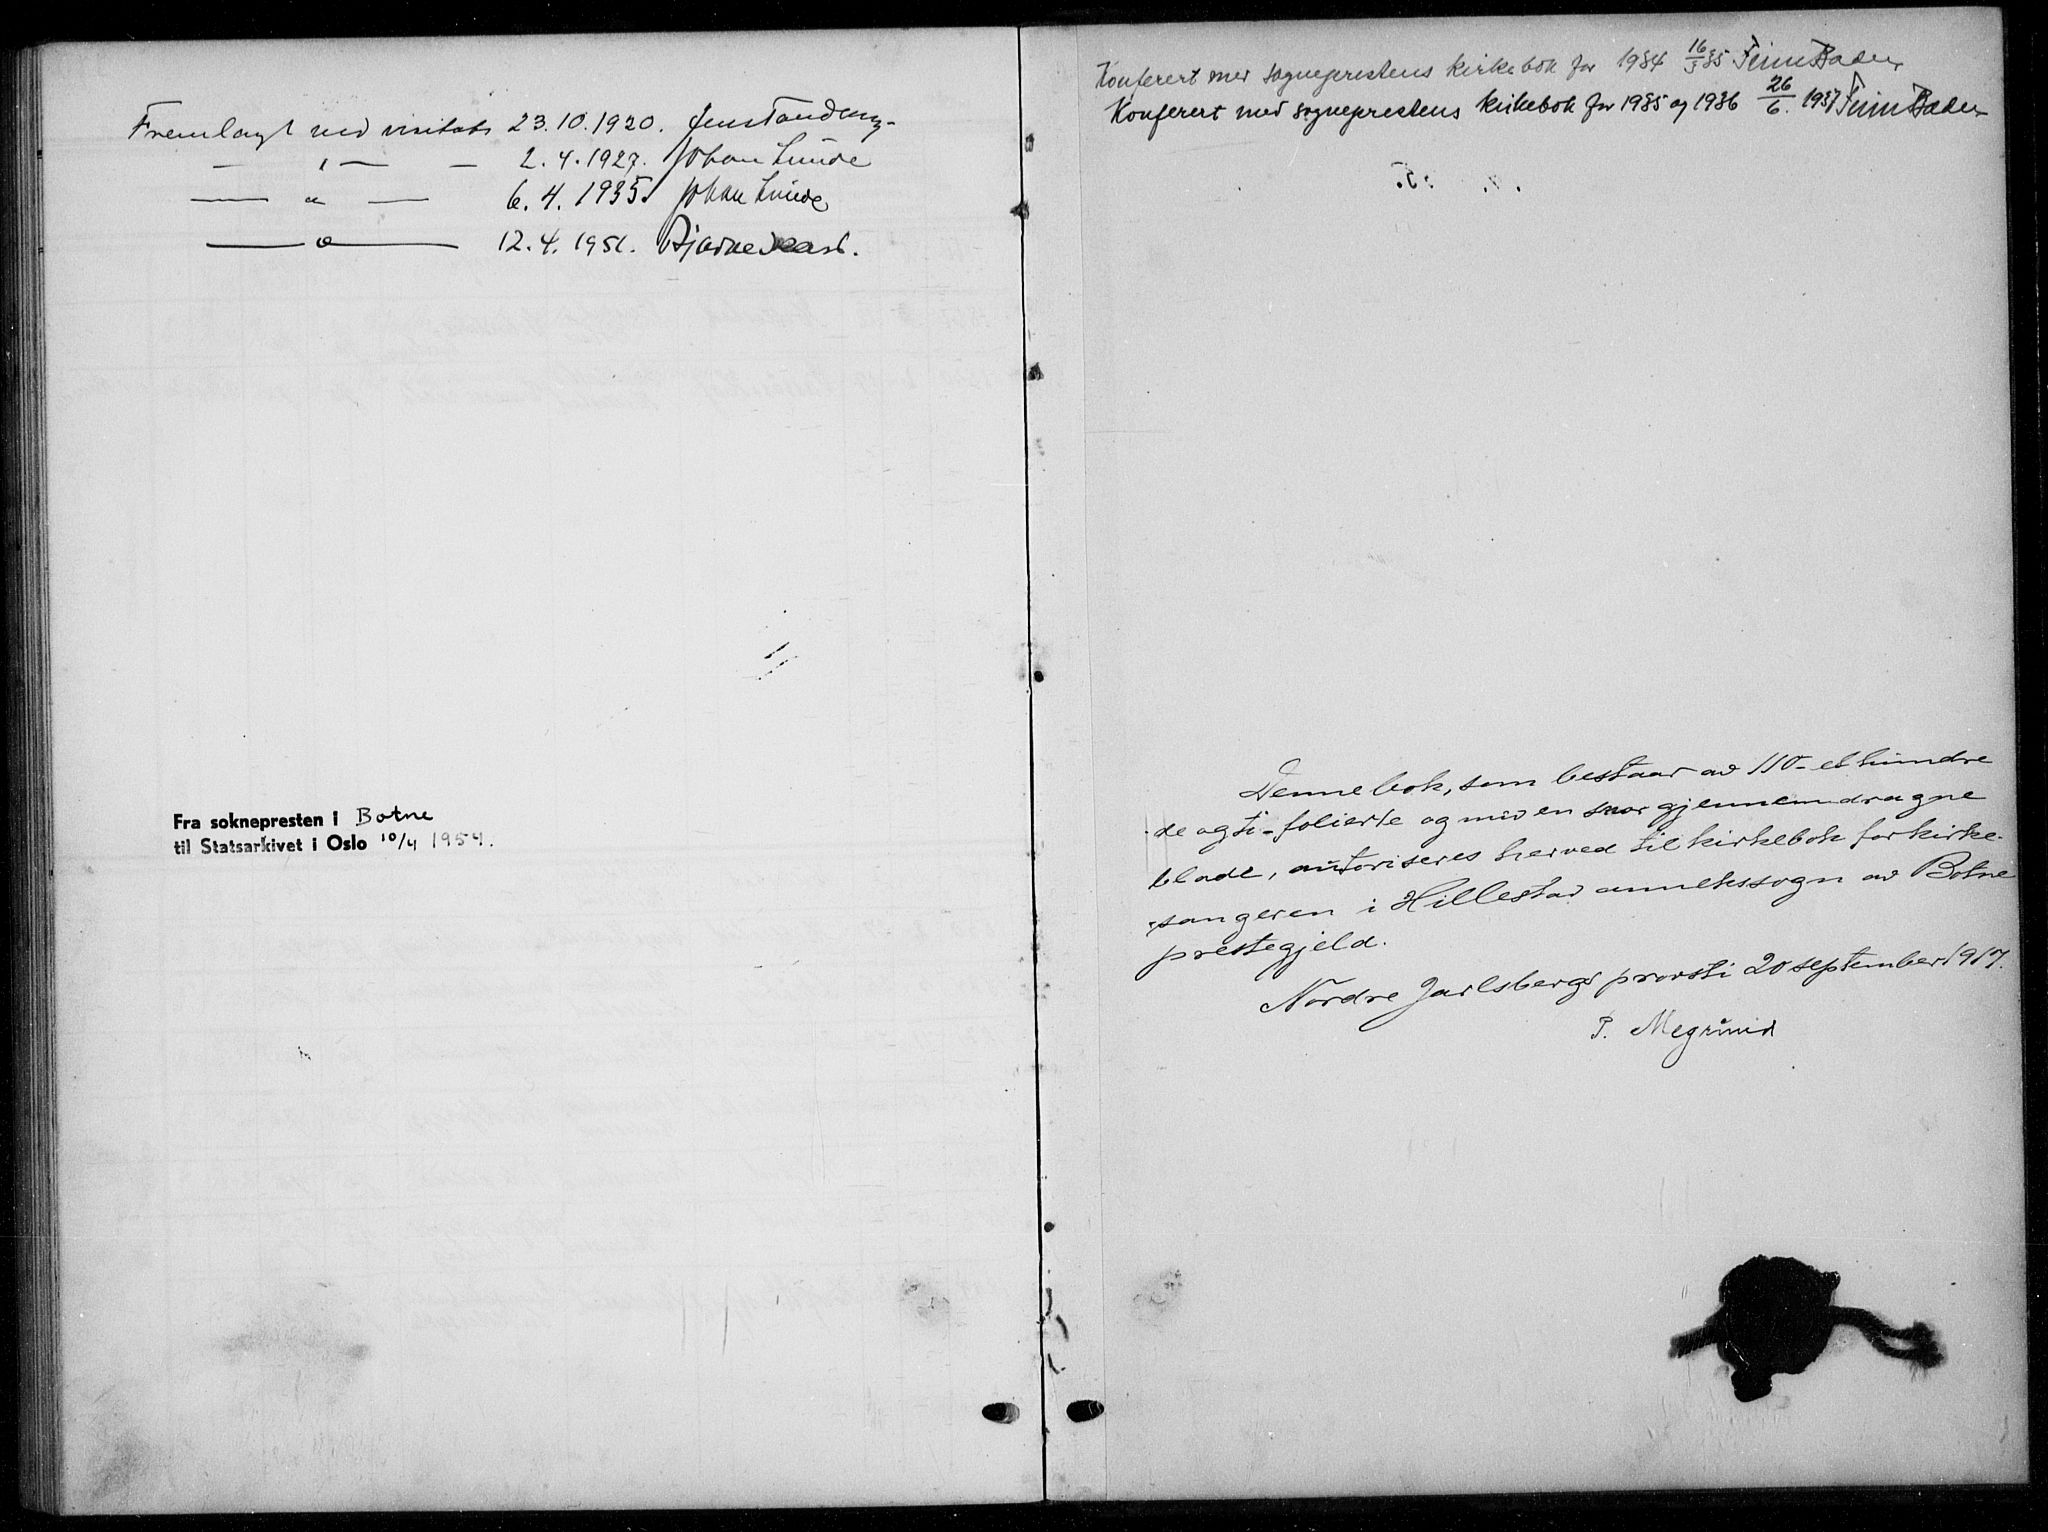 Fremlagt ved visitats 23.10.1920. Jens Tandberg
— " — — 2.4.1927. Johan Lunde
— " — 6.4.1935. Johan Lunde
— " — 12.4.1951. Bjarne
Fra soknepresten i Botne
til Statsarkivet i Oslo 10/4 1954.
Konferert med sogneprestens kirkebok for 1934 16/5 35 Finn Bader
Konferert med sogneprestens kirkebok for 1935 og 1936 26/6. 1937 Finn Bader
Denne bok, som bestaar av 110 - et hundre
de og ti - folierte og med en snor gjennemdragne
blade, autoriseres herved til kirkebok for kirke-
sangeren i Hillestad annekssogn av Botne
prestegjeld.
Nordre Jarlsbergs provsti 20 september 1917.
P. Megrund